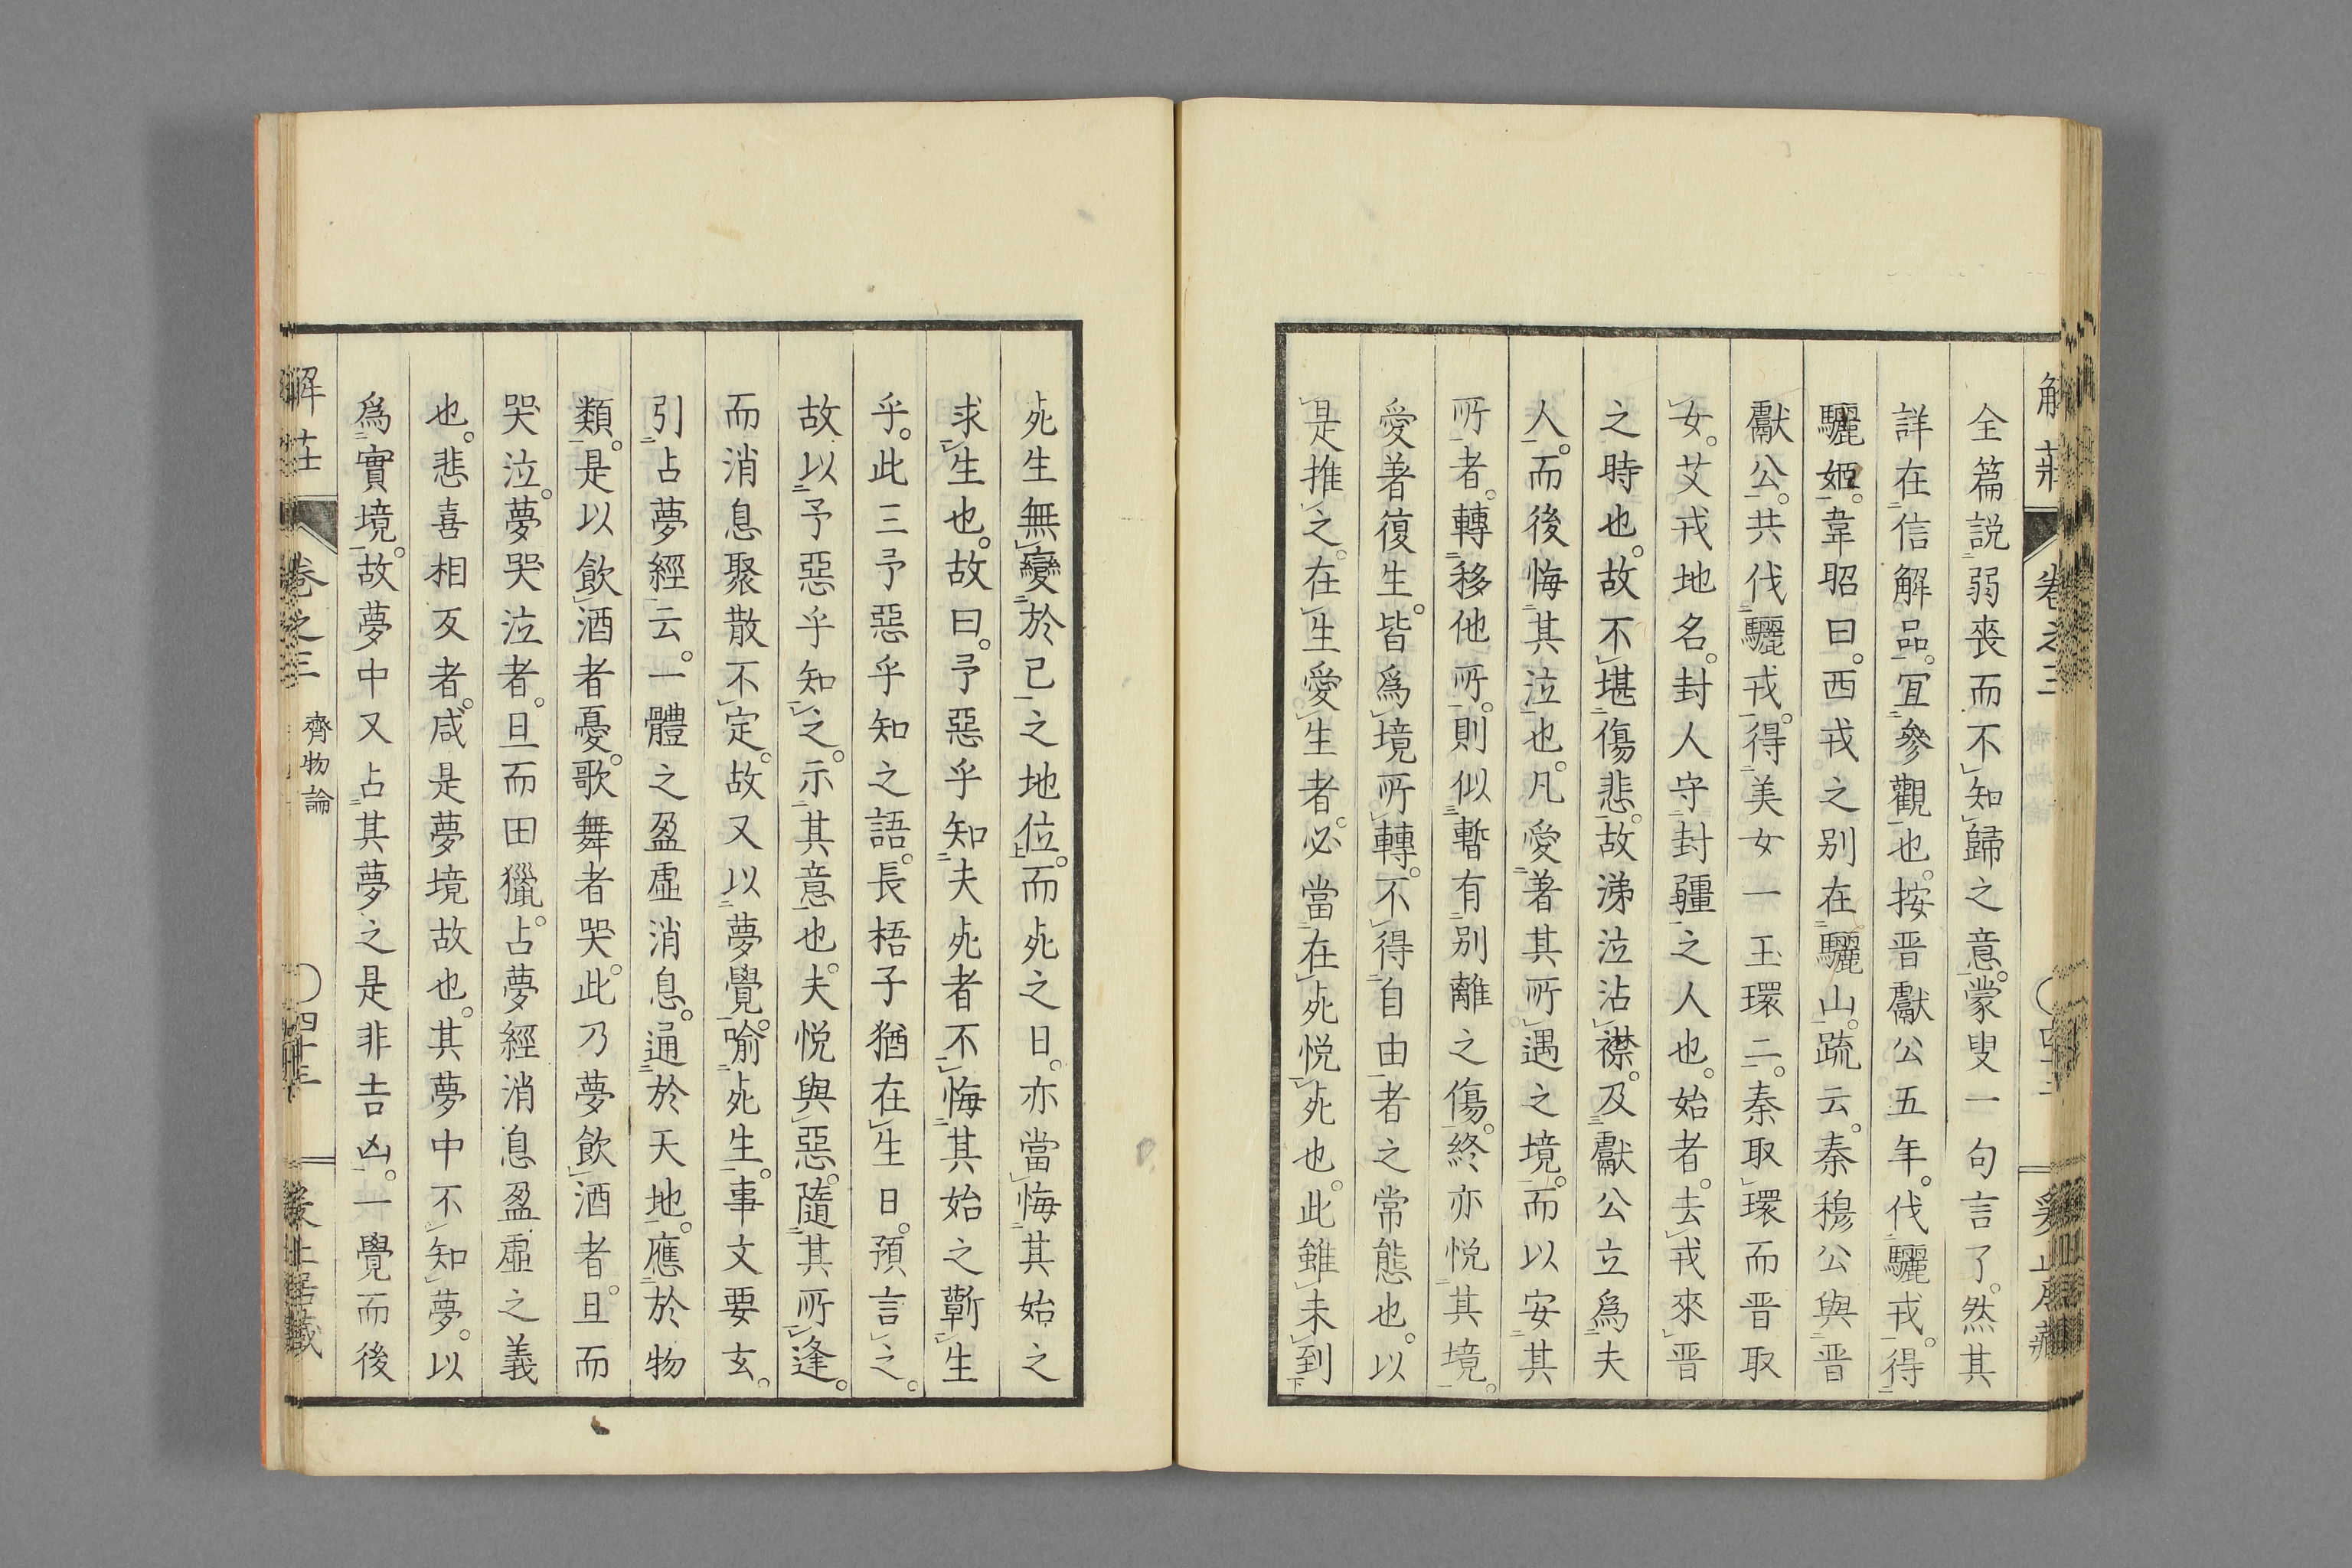 全篇説弱喪而不知歸之意。蒙叟一句言了。然其
詳在信解品。冝參觀也。按晋獻公五年。伐驪戎。得
驪姬。韋昭曰。西戎之别在驪山。䟽云。秦穆公與晋
獻公。共伐驪戎。得美女一玉環二。秦取環而晋取
女。艾戎地名。封人守封疆之人也。始者。去戎來晋
之時也。故不堪傷悲。故涕泣沾襟。及獻公立爲夫
人。而後悔其泣也。凡愛著其所遇之境。而以安其
所者。轉移他所。則似暫有别離之傷。終亦悦其境。
愛著復生。皆爲境所轉。不得自由者之常態也。以
是推之。在生愛生者。必當在死悦死也。此雖未到
死生無變於己之地位。而死之日。亦當悔其始之
求生也。故曰。予惡乎知夫死者不悔其始之蘄生
乎。此三予惡乎知之語。長梧子猶在生日。預言之。
故以予惡乎知之。示其意也。夫悦與惡。隨其所逢。
而消息聚散不定。故又以夢覺喻死生。事文要玄。
引占夢經云。一體之盈虛消息。通於天地。應於物
類。是以飲酒者憂。歌舞者哭。此乃夢飲酒者。旦而
哭泣。夢哭泣者。旦而田獵。占夢經消息盈虛之義
也。悲喜相反者。咸是夢境故也。其夢中不知夢。以
爲實境。故夢中又占其夢之是非吉凶。一覺而後
解莊 卷之三 齊物論 四十三